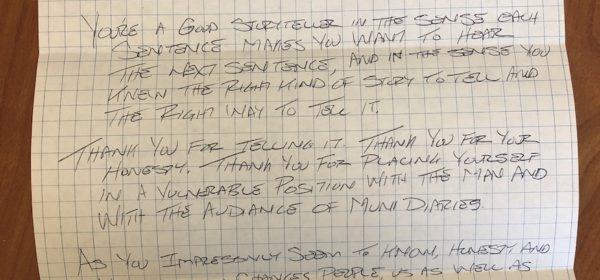 YOU'RE A GOOD STORYTELLER IN THE SENSE EACH
SENTENCE MAKES YOU WANT TO HEAR
THE NEXT SENTENCE, AND IN THE SENSE YOU
KNEW THE RIGHT KIND OF STORY TO TELL AND
THE RIGHT WAY TO TELL IT.
THANK YOU FOR TELLING IT. THANK YOU FOR YOUR
HONESTY. THANK YOU FOR PLACING YOURSELF
IN A VULNERABLE POSITION WITH THE MAN AND
WITH THE AUDIANCE OF MUNI DIARIES
AS YOU IMPRESSIVLY SEEM TO KNOW, HONESTY AND
CHANGES PEOPLE, US AS WELL AS